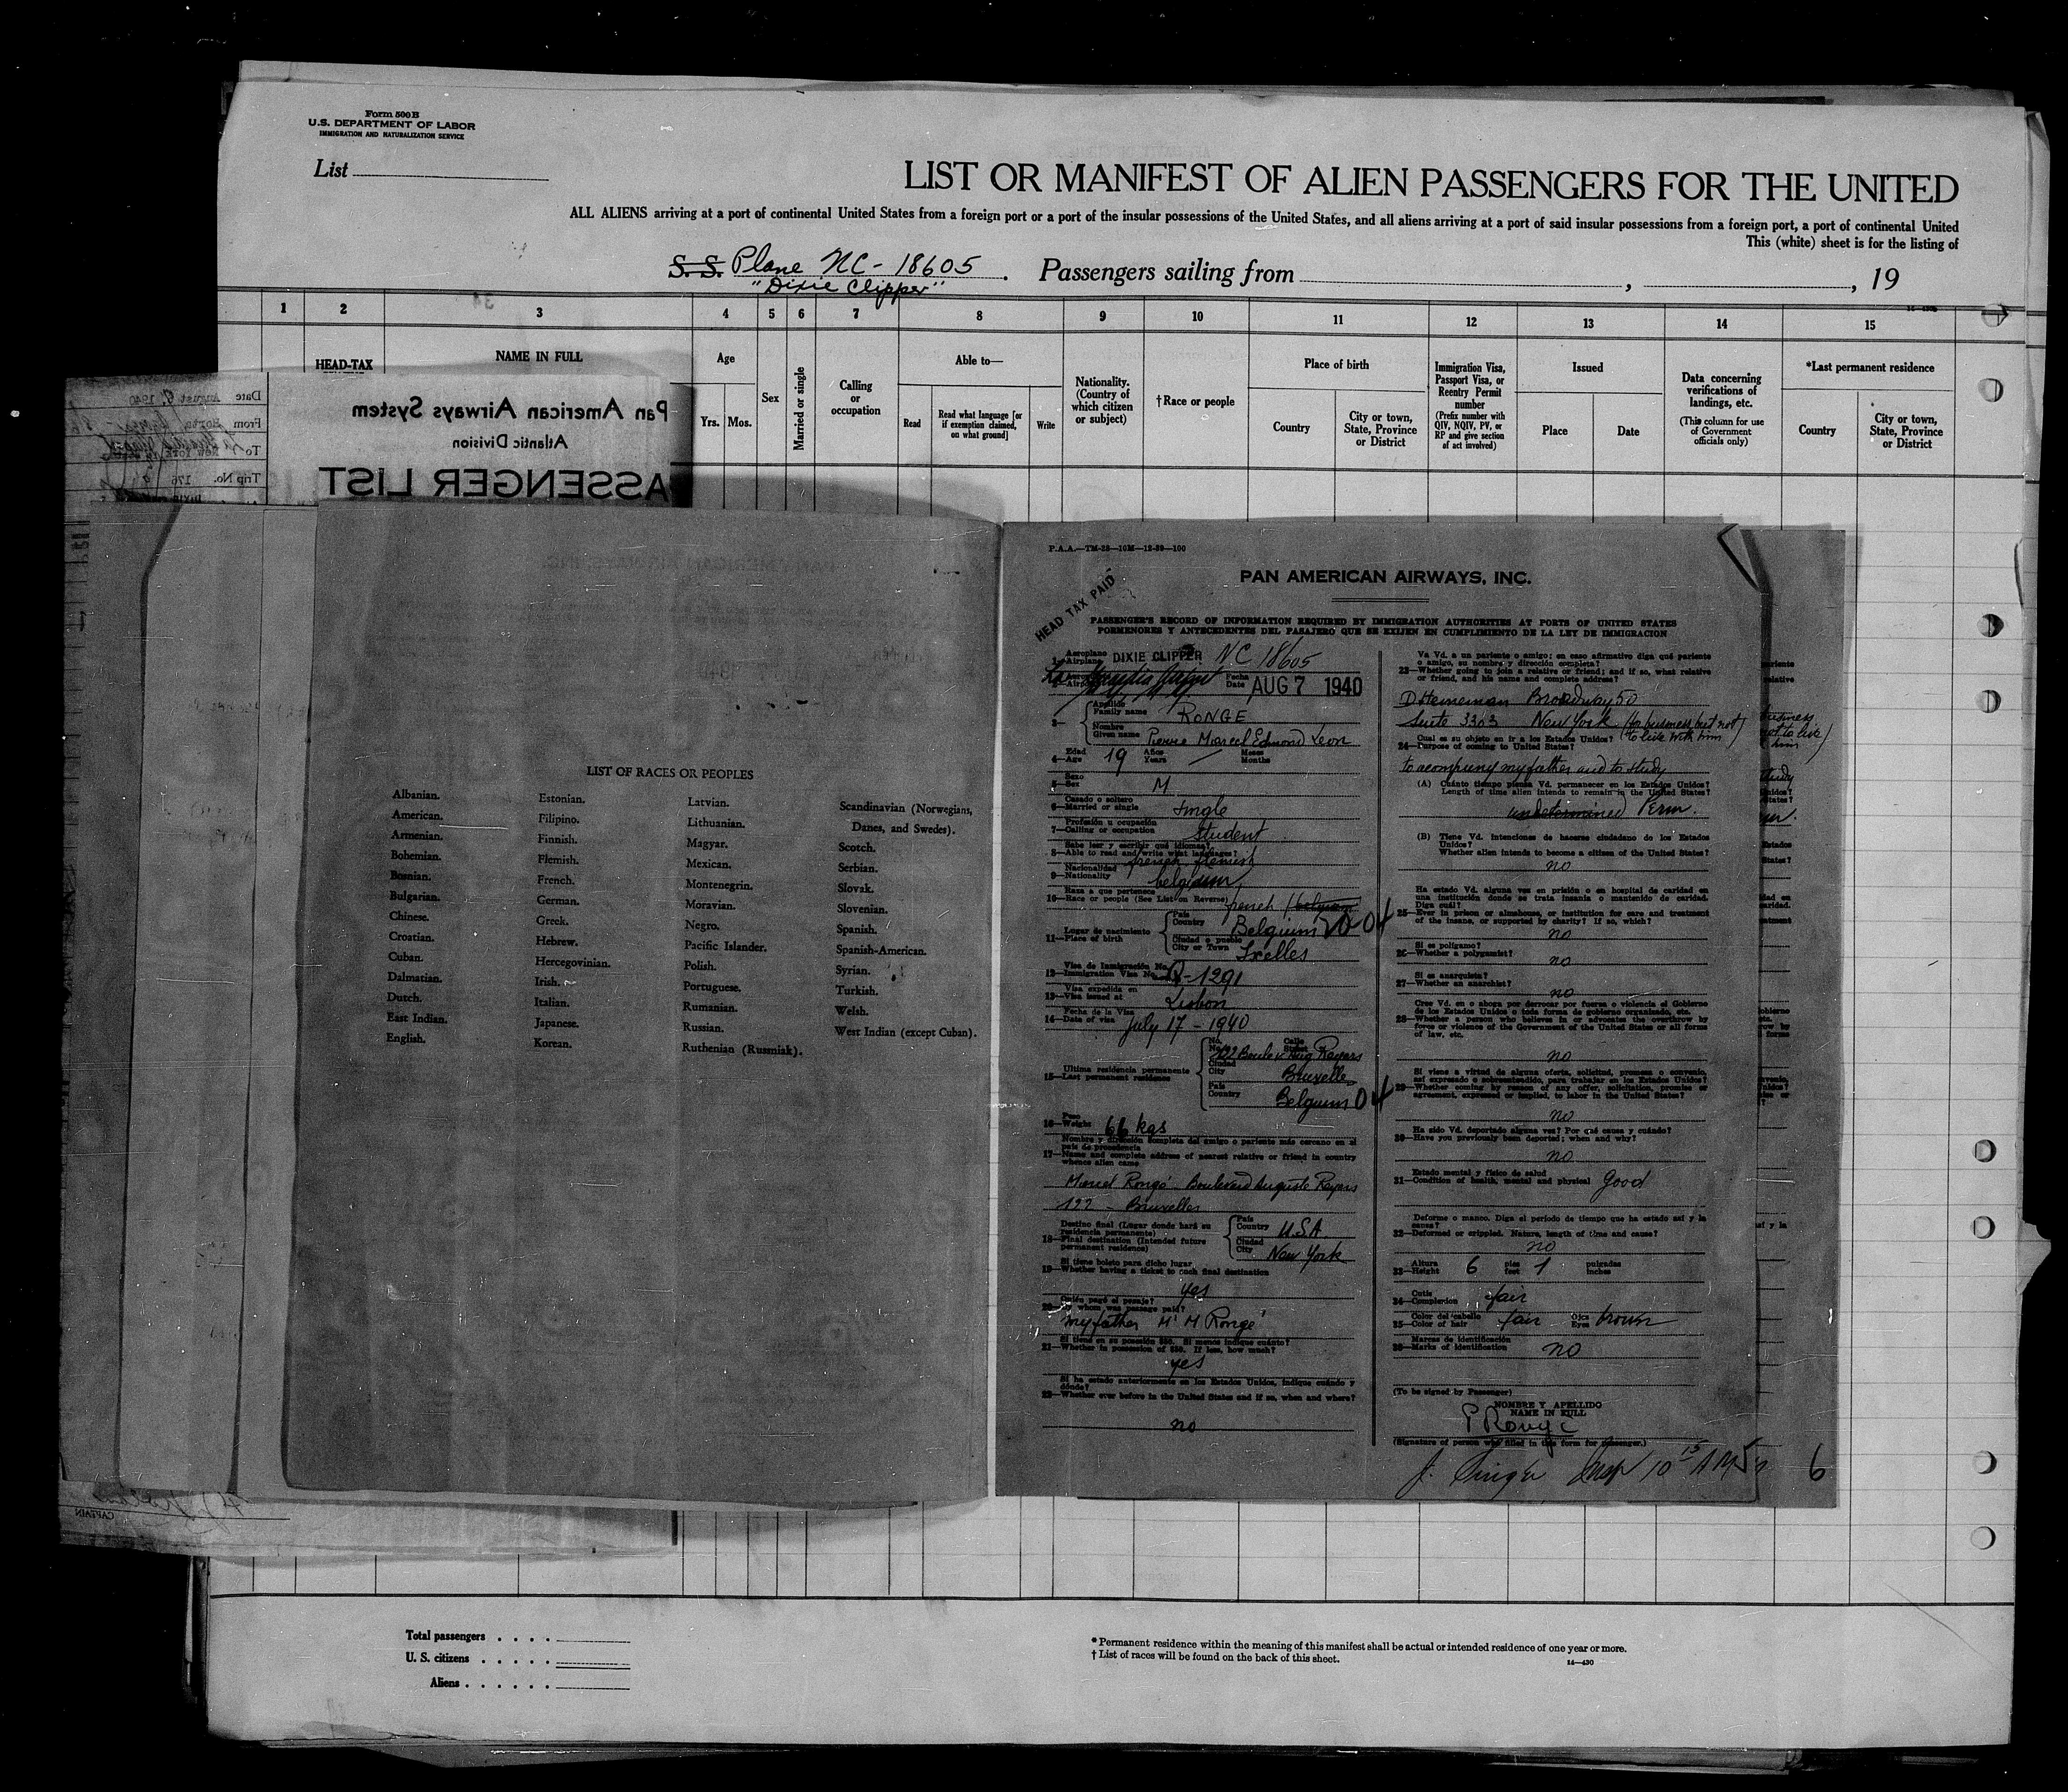 Form 500B
U.S. DEPARTMENT OF LABOR
IMMIGRATION AND NATURALIZATION SERVICE
List
LIST OR MANIFEST OF ALIEN PASSENGERS FOR THE UNITED
ALL ALIENS arriving at a port of continental United States from a foreign port or a port of the insular possessions of the United States, and all aliens arriving at a port of said insular possessions from a foreign port, a port of continental United
This (white) sheet is for the listing of
S. S. Plane NC-18605. Passengers sailing from , , 19
"Dixie Clipper"
1 2 3 4 5 6 7 8 9 10 11 12 13 14 15
HEAD-TAX
NAME IN FULL
Age
Yrs. Mos.
Sex
Married or single
Calling
or
occupation
Able to—
Read
Read what language [or
if exemption claimed,
on what ground]
Write
Nationality.
(Country of
which citizen
or subject)
†Race or people
Place of birth
Country
City or town,
State, Province
or District
Immigration Visa,
Passport Visa, or
Reentry Permit
number
(Prefix number with
QIV, NQIV, PV, or
RP and give section
of act involved)
Issued
Place
Date
Data concerning
verifications of
landings, etc.
(This column for use
of Government
officials only)
*Last permanent residence
Country
City or town,
State, Province
or District
Pan American Airways System
Atlantic Division
PASSENGER LIST
Date August 9, 1940
From Horta
To New York
Trip No. 176
CAPTAIN
LIST OF RACES OR PEOPLES
Albanian.
American.
Armenian.
Bohemian.
Bosnian.
Bulgarian.
Chinese.
Croatian.
Cuban.
Dalmatian.
Dutch.
East Indian.
English.
Estonian.
Filipino.
Finnish.
Flemish.
French.
German.
Greek.
Hebrew.
Hercegovinian.
Irish.
Italian.
Japanese.
Korean.
Latvian.
Lithuanian.
Magyar.
Mexican.
Montenegrin.
Moravian.
Negro.
Pacific Islander.
Polish.
Portuguese.
Rumanian.
Russian.
Ruthenian (Russniak).
Scandinavian (Norwegians,
Danes, and Swedes).
Scotch.
Serbian.
Slovak.
Slovenian.
Spanish.
Spanish-American.
Syrian.
Turkish.
Welsh.
West Indian (except Cuban).
P.A.A.—TM-28—10M—12-39—100
PAN AMERICAN AIRWAYS, INC.
HEAD TAX PAID
PASSENGER'S RECORD OF INFORMATION REQUIRED BY IMMIGRATION AUTHORITIES AT PORTS OF UNITED STATES
PORMENORES Y ANTECEDENTES DEL PASAJERO QUE SE EXIJEN EN CUMPLIMIENTO DE LA LEY DE IMMIGRACION
Aeroplano
1—Airplane DIXIE CLIPPER NC 18605
Fecha
Date AUG 7 1940
3—
Apellido
Family name RONGE
Nombre
Given name Pierre Marcel Edmond Leon
Edad
4—Age 19 Años Years Meses Months
Sexo
5—Sex M
Casado o soltero
6—Married or single single
Profesión u ocupación
7—Calling or occupation student
Sabe leer y escribir qué idiomas?
8—Able to read and write what languages? french flemish
Nacionalidad
9—Nationality belgium
Raza a que pertenece
10—Race or people (See List on Reverse) french belgium
Lugar de nacimiento
11—Place of birth
País
Country Belgium 04
Ciudad o pueblo
City or Town Ixelles
Visa de Inmigración No.
12—Immigration Visa No. Q-1291
Visa expedida en
13—Visa issued at Lisbon
Fecha de la Visa
14—Date of visa July 17-1940
Ultima residencia permanente
15—Last permanent residence
No. Calle
No. Street Aug Reyers
Ciudad
City Bruxelles
País
Country Belgium 04
Peso
16—Weight 66 kgs
Nombre y dirección completa del amigo o pariente más cercano en el
país de procedencia
17—Name and complete address of nearest relative or friend in country
whence alien came
Marcel Rongé Boulevard Auguste Reyers
122 - Bruxelles
Destino final (Lugar donde hará su
residencia permanente)
18—Final destination (Intended future
permanent residence)
País
Country U.S.A
Ciudad
City New York
Si tiene boleto para dicho lugar
19—Whether having a ticket to such final destination
yes
Quién pagó el pasaje?
20—By whom was passage paid?
my father Mr M Rongé
Si tiene en su posesión $50. Si menos indique cuánto?
21—Whether in possession of $50. If less, how much?
yes
Si ha estado anteriormente en los Estados Unidos, indique cuándo y
dónde?
22—Whether ever before in the United States and if so, when and where?
no
Va Vd. a un pariente o amigo; en caso afirmativo diga qué pariente
o amigo, su nombre y dirección completa?
23—Whether going to join a relative or friend; and if so, what relative
or friend, and his name and complete address?
D Heineman Broadway 50
Suite 3303 New York (to business but not
to live with him)
Cual es su objeto en ir a los Estados Unidos?
24—Purpose of coming to United States?
to acompany my father and to study
(A) Cuánto tiempo piensa Vd. permanecer en los Estados Unidos?
Length of time alien intends to remain in the United States?
undetermined Perm.
(B) Tiene Vd. intenciones de hacerse ciudadano de los Estados
Unidos?
Whether alien intends to become a citizen of the United States?
no
Ha estado Vd. alguna vez en prisión o en hospital de caridad en
una institución donde se trata insania o mantenido de caridad.
Diga cuál?
25—Ever in prison or almshouse, or institution for care and treatment
of the insane, or supported by charity? If so, which?
no
Si es polígamo?
26—Whether a polygamist?
no
Si es anarquista?
27—Whether an anarchist?
no
Cree Vd. en o aboga por derrocar por fuerza o violencia el Gobierno
de los Estados Unidos o toda forma de gobierno organizado, etc.
28—Whether a person who believes in or advocates the overthrow by
force or violence of the Government of the United States or all forms
of law, etc.
no
Si viene a virtud de alguna oferta, solicitud, promesa o convenio,
así expresado o sobreentendido, para trabajar en los Estados Unidos?
29—Whether coming by reason of any offer, solicitation, promise or
agreement, expressed or implied, to labor in the United States?
no
Ha sido Vd. deportado alguna vez? Por qué causa y cuándo?
30—Have you previously been deported; when and why?
no
Estado mental y físico de salud
31—Condition of health, mental and physical Good
Deforme o manco. Diga el período de tiempo que ha estado así y la
causa?
32—Deformed or crippled. Nature, length of time and cause?
no
Altura
33—Height 6 pies feet 1 pulgadas inches
Cutis
34—Complexion fair
Color del cabello
35—Color of hair fair Ojos Eyes brown
Marcas de identificación
36—Marks of identification no
(To be signed by Passenger)
NOMBRE Y APELLIDO
NAME IN FULL
P Rongé
(Signature of person who filled in this form for passenger.)
6
Total passengers . . . .
U. S. citizens . . . . .
Aliens . . . . . .
* Permanent residence within the meaning of this manifest shall be actual or intended residence of one year or more.
† List of races will be found on the back of this sheet.
14—430